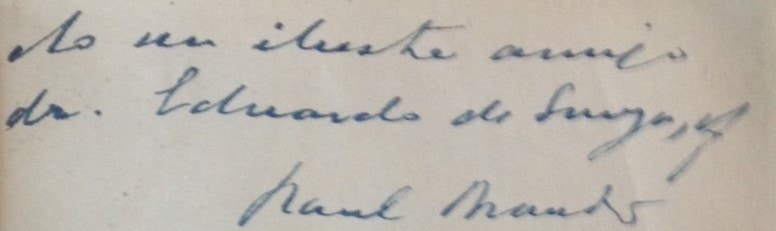 Ao seu ilustre amigo
dr. Eduardo de Souza,
Raul Brandão